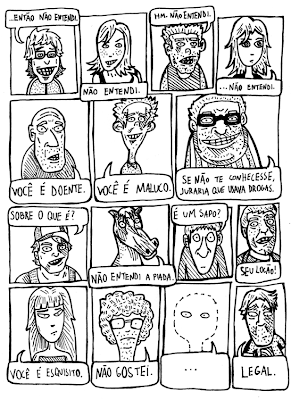 ...ENTÃO NÃO ENTENDI.
NÃO ENTENDI.
HM. NÃO ENTENDI.
...NÃO ENTENDI.
VOCÊ É DOENTE.
VOCÊ É MALUCO.
SE NÃO TE CONHECESSE,
JURARIA QUE USAVA DROGAS.
SOBRE O QUE É?
NÃO ENTENDI A PIADA.
É UM SAPO?
SEU LOCÃO!
VOCÊ É ESQUISITO.
NÃO GOSTEI.
...
LEGAL.